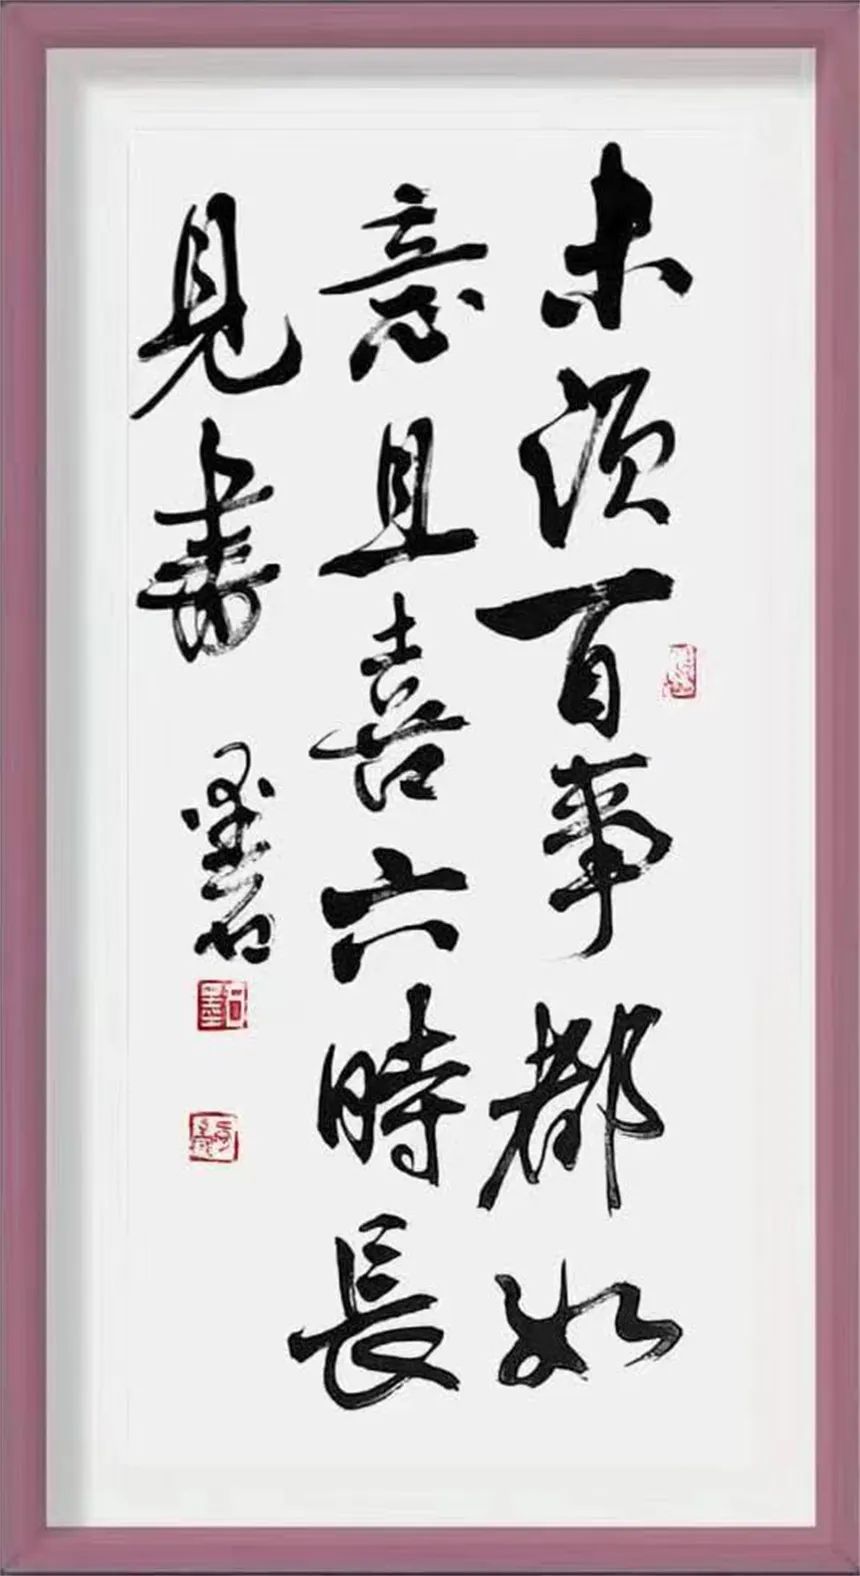 未須百事都如
意且喜六時長
見書
墨石